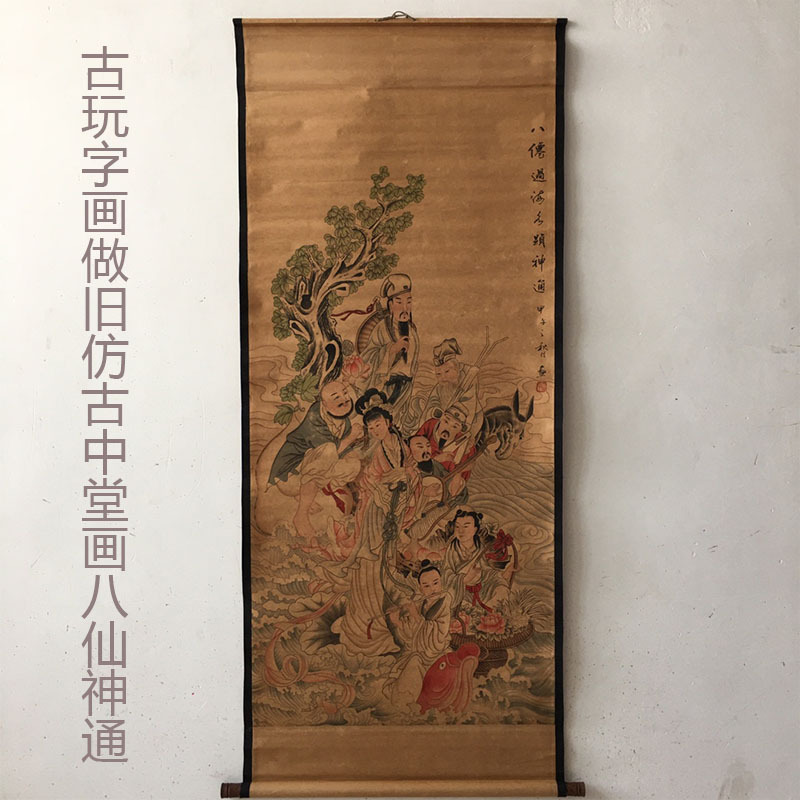 古玩字画做旧仿古中堂画八仙神通
八僊過海各顕神通
甲子之秋